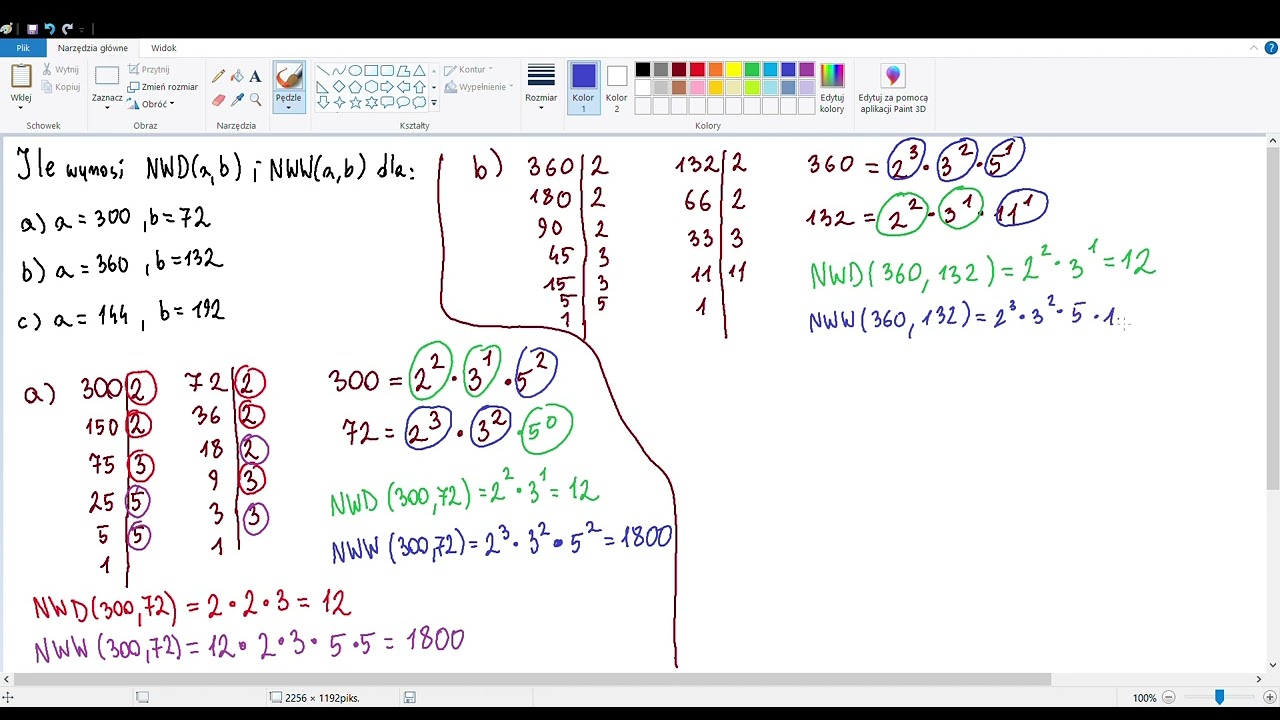 Plik Narzędzia główne Widok
Wklej
Wytnij
Kopiuj
Schowek
Zaznacz
Przytnij
Zmień rozmiar
Obróć
Obraz
Narzędzia
Pędzle
Kontur
Wypełnienie
Kształty
Rozmiar
Kolor 1
Kolor 2
Kolory
Edytuj kolory
Edytuj za pomocą aplikacji Paint 3D
Ile wynosi NWD(a,b) i NWW(a,b) dla:
a) a = 300 , b = 72
b) a = 360 , b = 132
c) a = 144 , b = 192
a)
300 2
150 2
75 3
25 5
5 5
1
72 2
36 2
18 2
9 3
3 3
1
NWD(300,72) = 2 · 2 · 3 = 12
NWW(300,72) = 12 · 2 · 3 · 5 · 5 = 1800
300 = 2² · 3¹ · 5²
72 = 2³ · 3² · 5⁰
NWD(300,72) = 2² · 3¹ = 12
NWW(300,72) = 2³ · 3² · 5² = 1800
b)
360 2
180 2
90 2
45 3
15 3
5 5
1
132 2
66 2
33 3
11 11
1
360 = 2³ · 3² · 5¹
132 = 2² · 3¹ · 11¹
NWD(360, 132) = 2² · 3¹ = 12
NWW(360, 132) = 2³ · 3² · 5 · 1
2256 × 1192piks.
100%